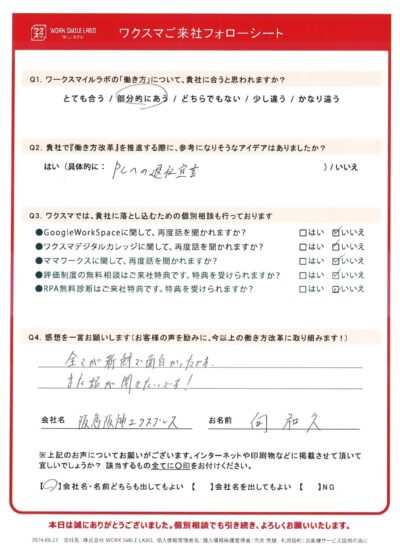 ワクスマ
WORK SMILE LABO
ワクスマご来社フォローシート
Q1. ワークスマイルラボの「働き方」について、貴社に合うと思われますか？
とても合う / 部分的にあう / どちらでもない / 少し違う / かなり違う
Q2. 貴社で『働き方改革』を推進する際に、参考になりそうなアイデアはありましたか？
はい（具体的に： PCへの退社宣言 ）/ いいえ
Q3. ワクスマでは、貴社に落とし込むための個別相談も行っております
●GoogleWorkSpaceに関して、再度話を聞かれますか？ □はい ☑いいえ
●ワクスマデジタルカレッジに関して、再度話を聞かれますか？ □はい ☑いいえ
●ママワークスに関して、再度話を聞かれますか？ □はい ☑いいえ
●評価制度の無料相談はご来社特典です。特典を受けられますか？ □はい ☑いいえ
●RPA無料診断はご来社特典です。特典を受けられますか？ □はい ☑いいえ
Q4. 感想を一言お願いします（お客様の声を励みに、今以上の働き方改革に取り組みます！）
全てが新鮮で面白かったです。
また話が聞きたいです！
会社名 阪急阪神エクスプレス お名前 向 和久
※上記のお声についてお願いがございます。インターネットや印刷物などに掲載させて頂いて
宜しいでしょうか？ 該当するもの全てに〇印をお付けください。
【〇】会社名・名前どちらも出してもよい 【 】会社名だけ出してもよい 【 】NG
本日は誠にありがとうございました。個別相談でも引き続き、よろしくお願いいたします。
2024.06.27 会社名：株式会社 WORK SMILE LABO、個人情報管理者名：個人情報保護管理者：石井 秀康、利用目的：お客様サービス提供の為に